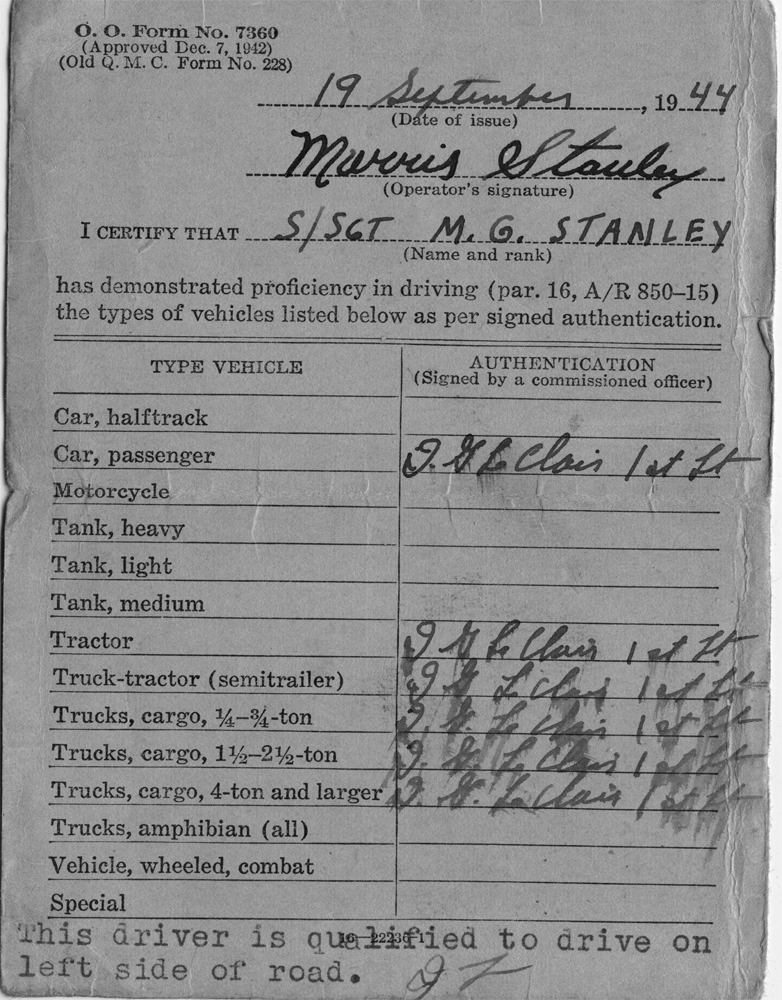 O. O. Form No. 7360
(Approved Dec. 7, 1942)
(Old Q. M. C. Form No. 228)
19 September, 1944
(Date of issue)
Morris Stanley
(Operator's signature)
I CERTIFY THAT S/SGT M. G. STANLEY
(Name and rank)
has demonstrated proficiency in driving (par. 16, A/R 850–15)
the types of vehicles listed below as per signed authentication.
TYPE VEHICLE AUTHENTICATION
(Signed by a commissioned officer)
Car, halftrack
Car, passenger LeClair 1st Lt
Motorcycle
Tank, heavy
Tank, light
Tank, medium
Tractor LeClair 1st Lt
Truck-tractor (semitrailer) LeClair 1st Lt
Trucks, cargo, ¼–¾-ton LeClair 1st Lt
Trucks, cargo, 1½–2½-ton LeClair 1st Lt
Trucks, cargo, 4-ton and larger LeClair 1st Lt
Trucks, amphibian (all)
Vehicle, wheeled, combat
Special
This driver is qualified to drive on
left side of road.